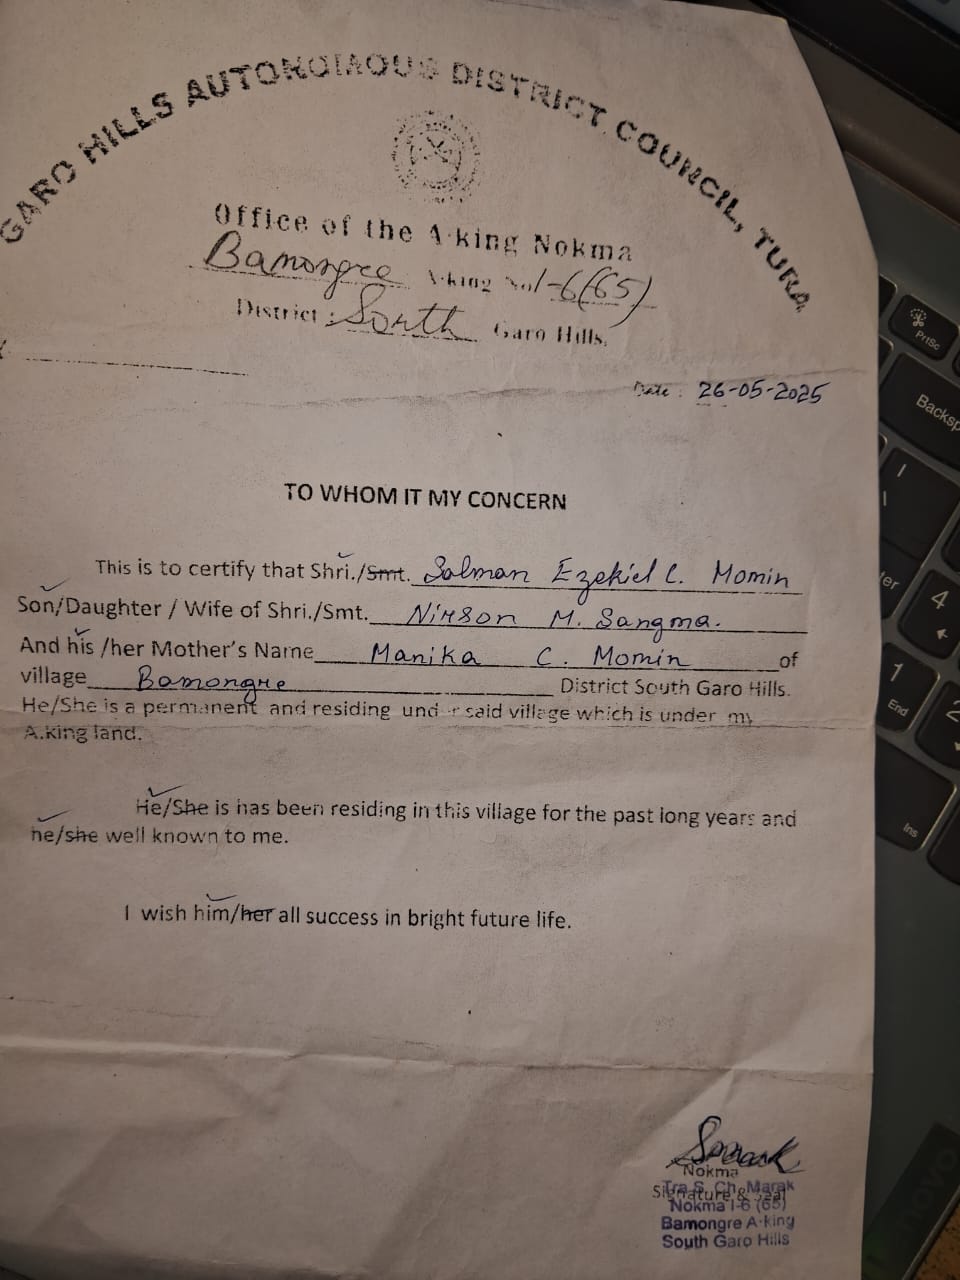 GARO HILLS AUTONOMOUS DISTRICT COUNCIL, TURA
Office of the A·king Nokma
Bamongre A·king No I-6(65)
District : South Garo Hills.
Date : 26-05-2025
TO WHOM IT MY CONCERN
This is to certify that Shri./Smt. Salman Ezekiel C. Momin
Son/Daughter / Wife of Shri./Smt. Nirson M. Sangma.
And his /her Mother's Name Manika C. Momin of
village Bamongre District South Garo Hills.
He/She is a permanent and residing under said village which is under my
A.king land.
He/She is has been residing in this village for the past long years and
he/she well known to me.
I wish him/her all success in bright future life.
Nokma
Signature & Seal
Tra S. Ch. Marak
Nokma I-6 (65)
Bamongre A·king
South Garo Hills
PrtSc
Backsp
4
1
End
2
Ins